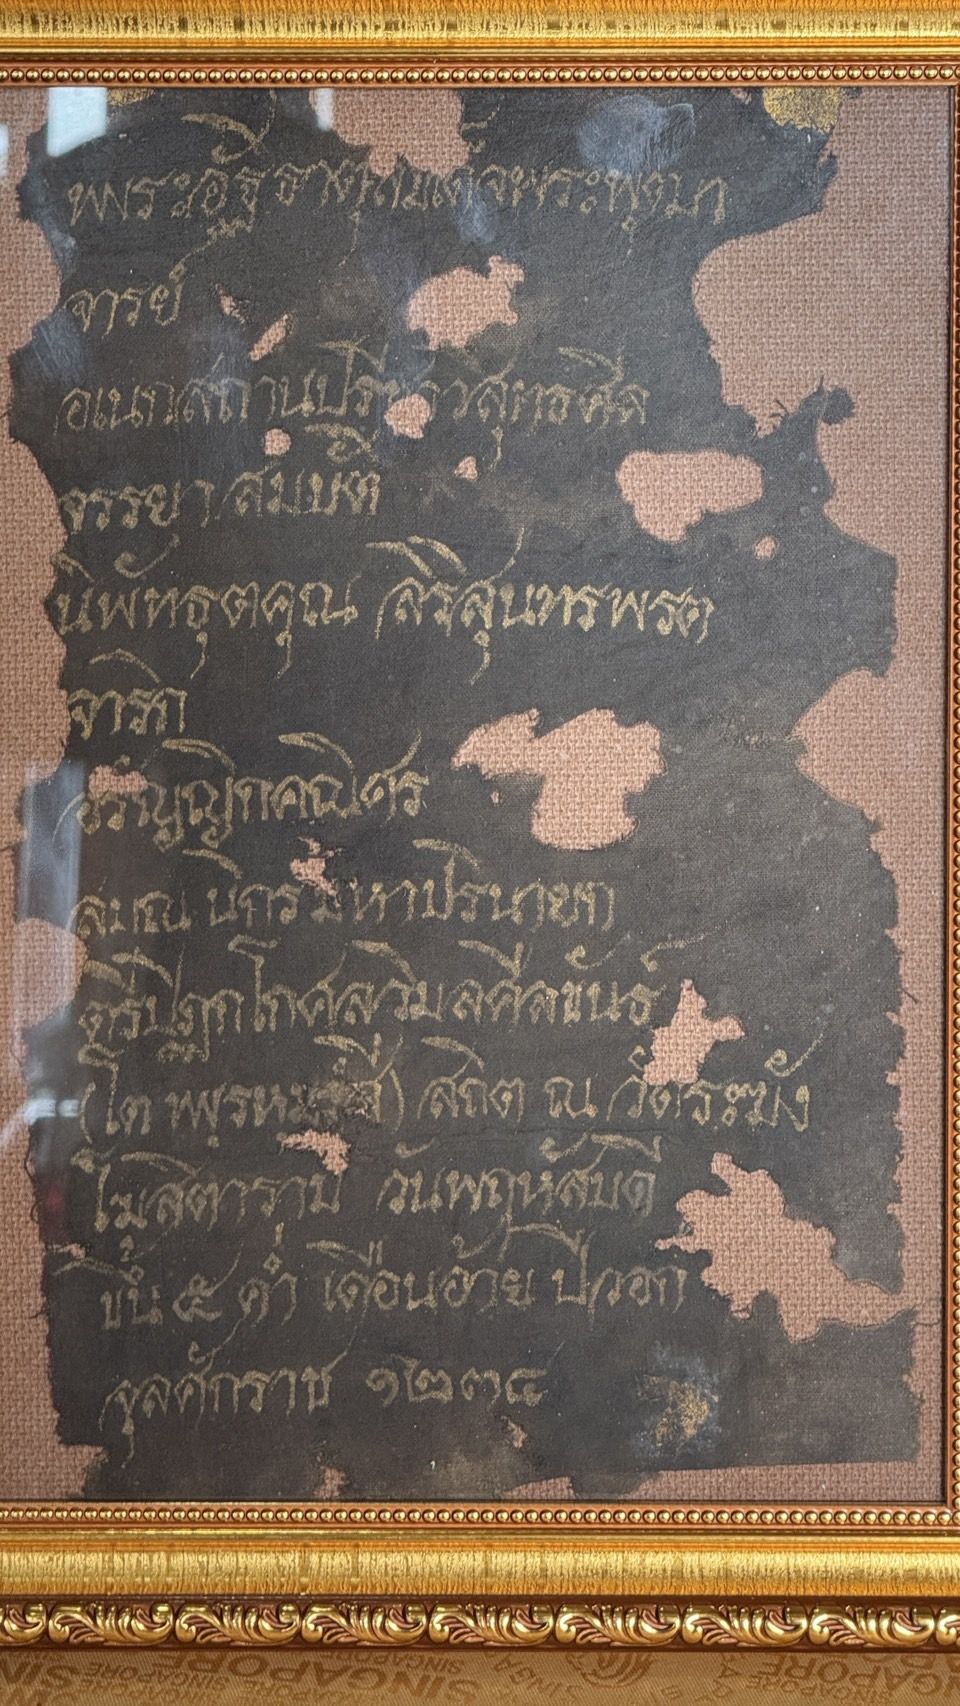 พระอัฐิธาตุสมเด็จพระพุฒา
จารย์
อเนกสถานปรีชาวิสุทธศีล
จรรยาสมบัติ
นิพัทธุตคุณ สิริสุนทรพรต
จาริก
อรัญญิกคณิศร
สมณนิกรมหาปรินายก
ตรีปิฎกโกศลวิมลศีลขันธ์
(โต พรหมรังสี) สถิต ณ วัดระฆัง
โฆสิตาราม วันพฤหัสบดี
ขึ้น ๕ ค่ำ เดือนอ้าย ปีวอก
จุลศักราช ๑๒๓๔
SINGAPORE